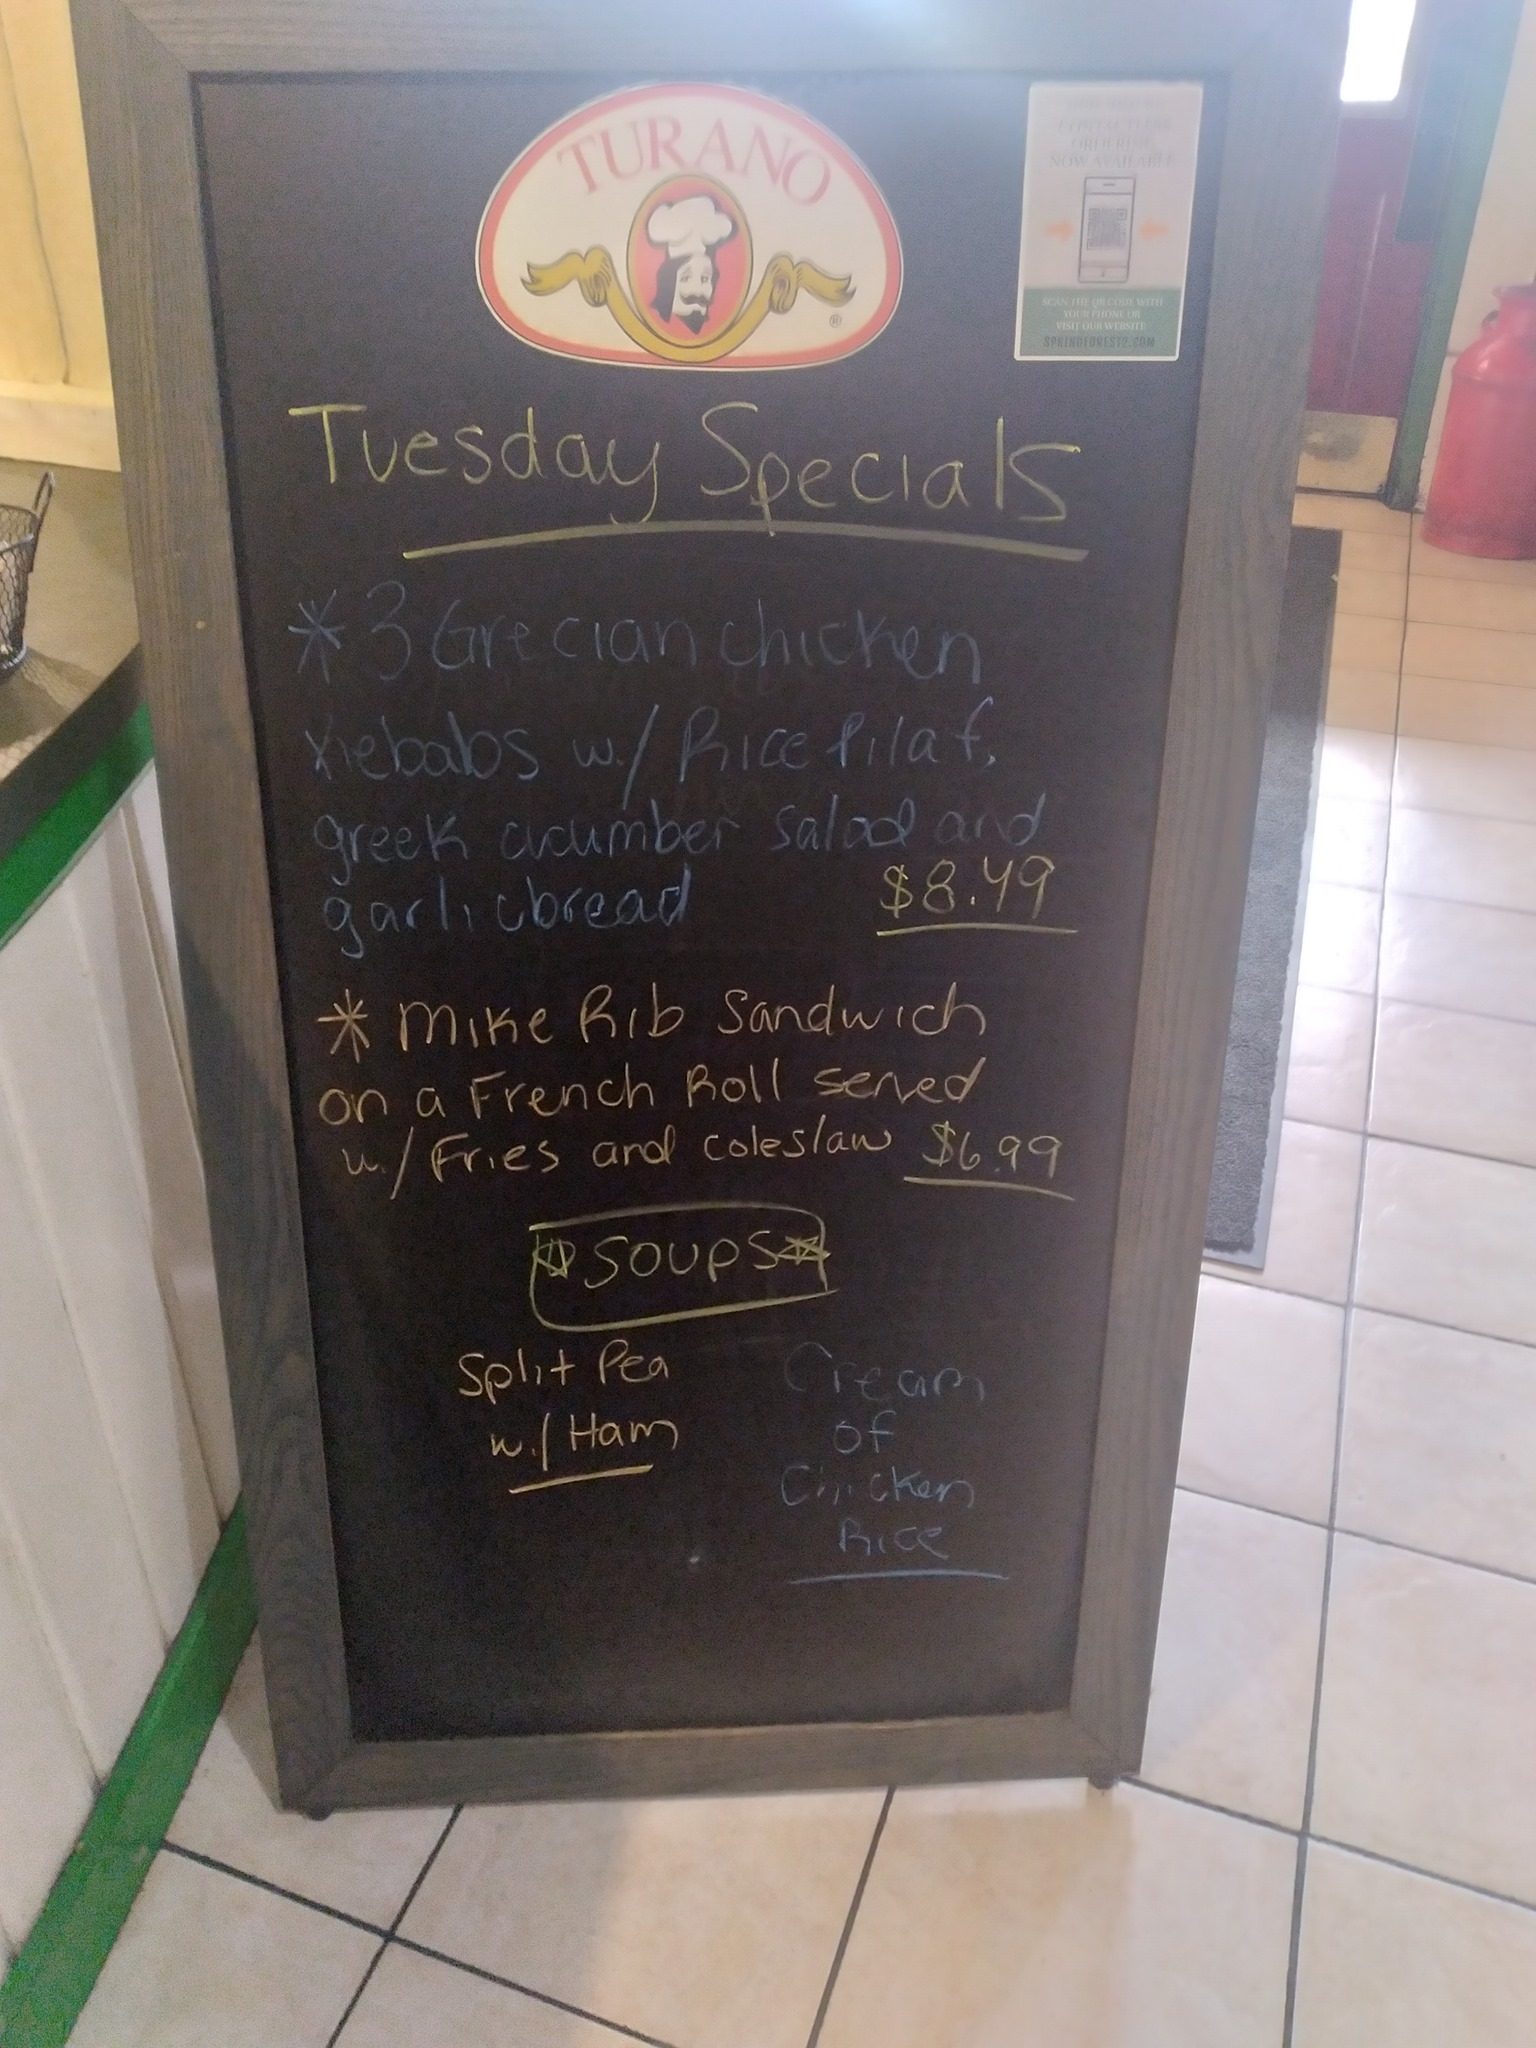 TURANO
®
CONTACTLESS
ORDERING
NOW AVAILABLE
SCAN THE QR CODE WITH
YOUR PHONE OR
VISIT OUR WEBSITE
SPRINGFOREST2.COM
Tuesday Specials
* 3 Grecian chicken
Kebabs w./ Rice Pilaf,
greek cucumber salad and
garlic bread $8.49
* Mike Rib Sandwich
on a French Roll served
w./Fries and coleslaw $6.99
SOUPS
Split Pea
w./Ham
Cream
of
Chicken
Rice